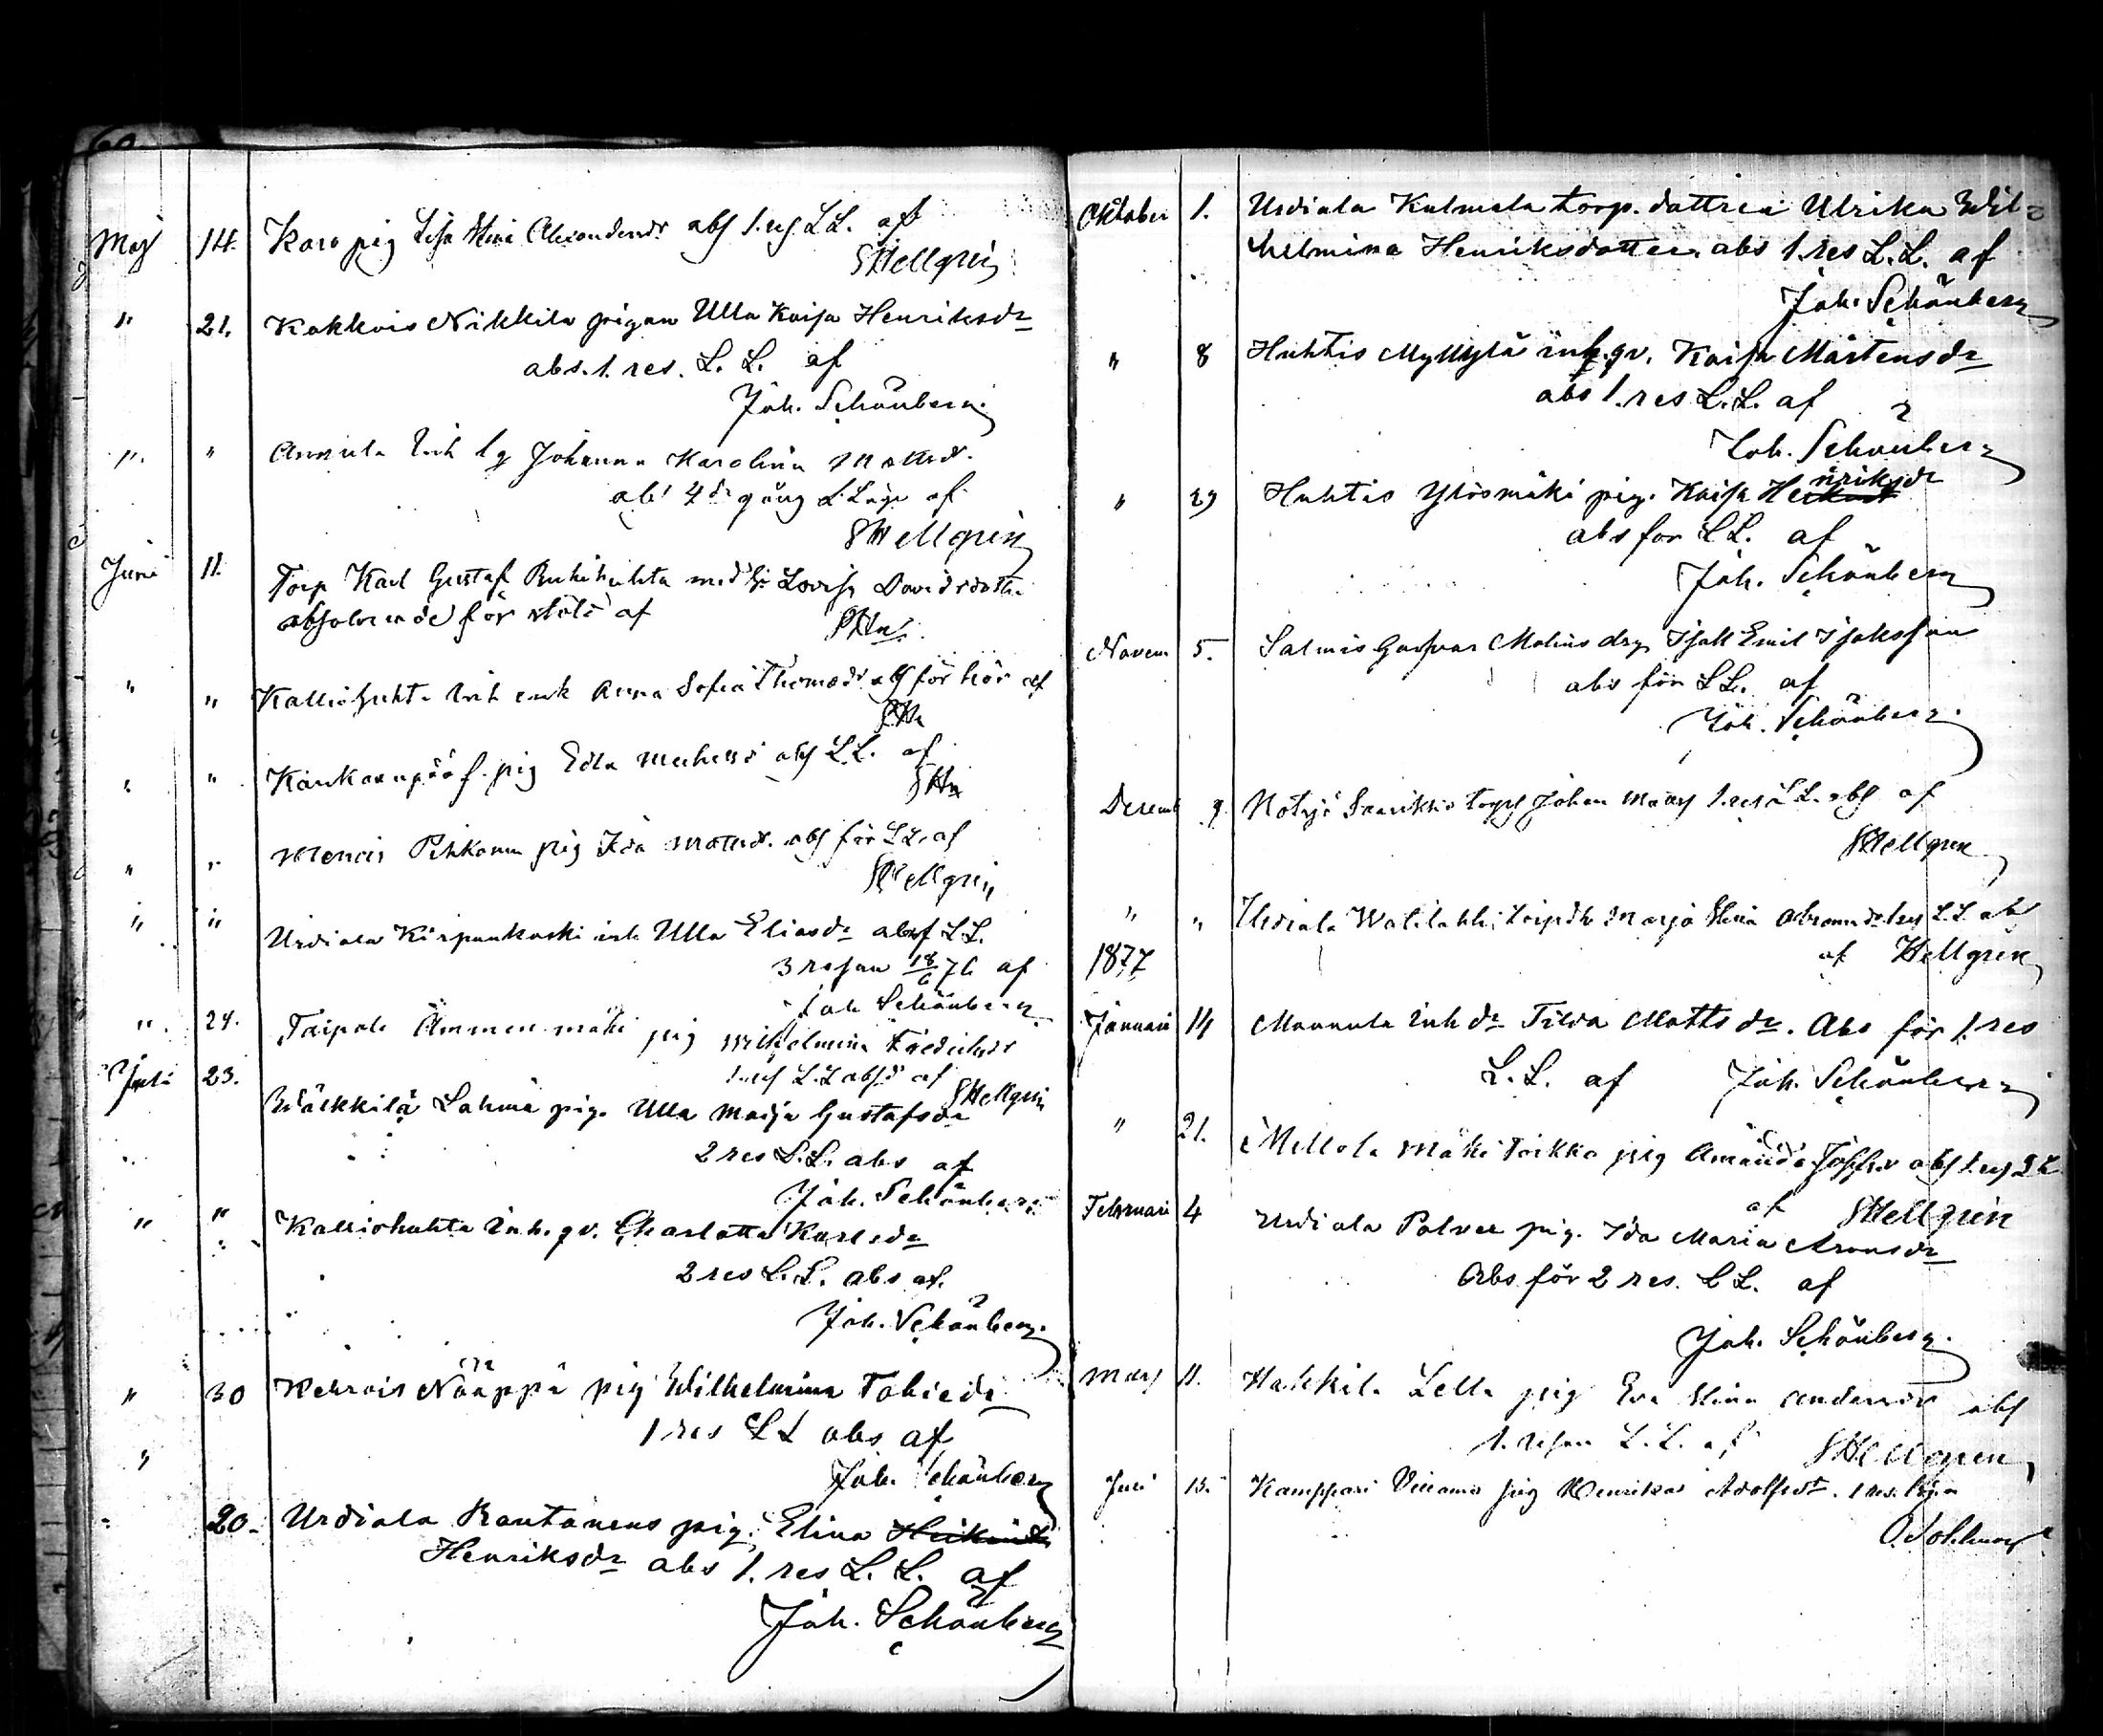 Maj 14. Karo pig Lisa Stina Alexandersdr abs 1. res L L. af
SHellgrén
" 21. Kokkois Nikkilä pigan Ulla Kaisa Henriksdr
abs. 1. res. L. L. af
Joh. Schönberg.
" " Annula Inh Johanna Karolina Mattsdr.
abs 4de gång L. Läge af
SHellgrén
Juni 11. Torp Karl Gustaf Ruhihuhta med h: Lovisa Davidsdotter
absolverade för stöld af
SHn
" " Kalliohuhta Inh enk Anna Sofia Thomasdr för hör af
SHn
" " Kankaanpää f. pig Edla Michelsd abs L L. af
SHn
" " Menois Pihkanm pig Ida Mattsdr. abs för L L. af
SHellgrén
" " Urdiala Kirpunkoski inh Ulla Eliasdr abs f L L.
3 resan 18/6 76 af
Joh Schönberg
" 24. Taipale Ämmenmäki pig Wilhelmina Fredriksdr
1. res L. L abs. af SHellgrén
Juli 23. Wälkkilä Lahma pig. Ulla Maija Gustafsdr
2 res L. L. abs af
Joh. Schönberg
" " Kalliohuhta Inh. qv. Charlotta Karlsdr
2 res L. L. abs af.
Joh. Schönberg.
" 30 Kehrois Nääppä pig Wilhelmina Tobiedr
1 res L L abs af
Joh. Schönberg
" 20. Urdiala Rantanens pig. Elina Heikintr
Henriksdr abs 1. res L. L. af
Joh. Schönberg
Oktober 1. Urdiala Kulmala torp. dottren Ulrika Wil-
helmina Henriksdotter abs 1. res L. L. af
Joh. Schönberg
" 8 Huhtis Myllylä inh. qv. Kaisa Mårtensdr
abs 1. res L. L. af
Joh. Schönberg
" 29 Huhtis Ylösmäki pig. Kaisa Henriksdr
abs for L L. af
Joh. Schönberg
Novem 5. Salmis Malins drg Isak Emil Isaksson
abs för L L. af
Joh. Schönberg.
Decemb 9. Notsjö Johan 1. res L L. abs af
SHellgren
" " Urdiala Walilahti torpdtr Marja Stina Abramsdr 1 res L L abs
af Hellgrén
1877
Januari 14 Mannula Inh dr Tilda Mattsdr. Abs för 1. res
L. L. af Joh. Schönberg
" 21. Mellola Mäki Toikka pig Amanda Josefsdr abs 1. res L L
af SHellgrén
Februari 4 Urdiala Palvee pig. Ida Maria Aronsdr
Abs för 2 res. L L. af
Joh. Schönberg.
Mars 11. Hakkila Lella pig Eva Stina Andersdr abs
1. resan L. L. af SHellgren
Juni 13. Kamppari pig Henrika Adolfsdr. 1 res